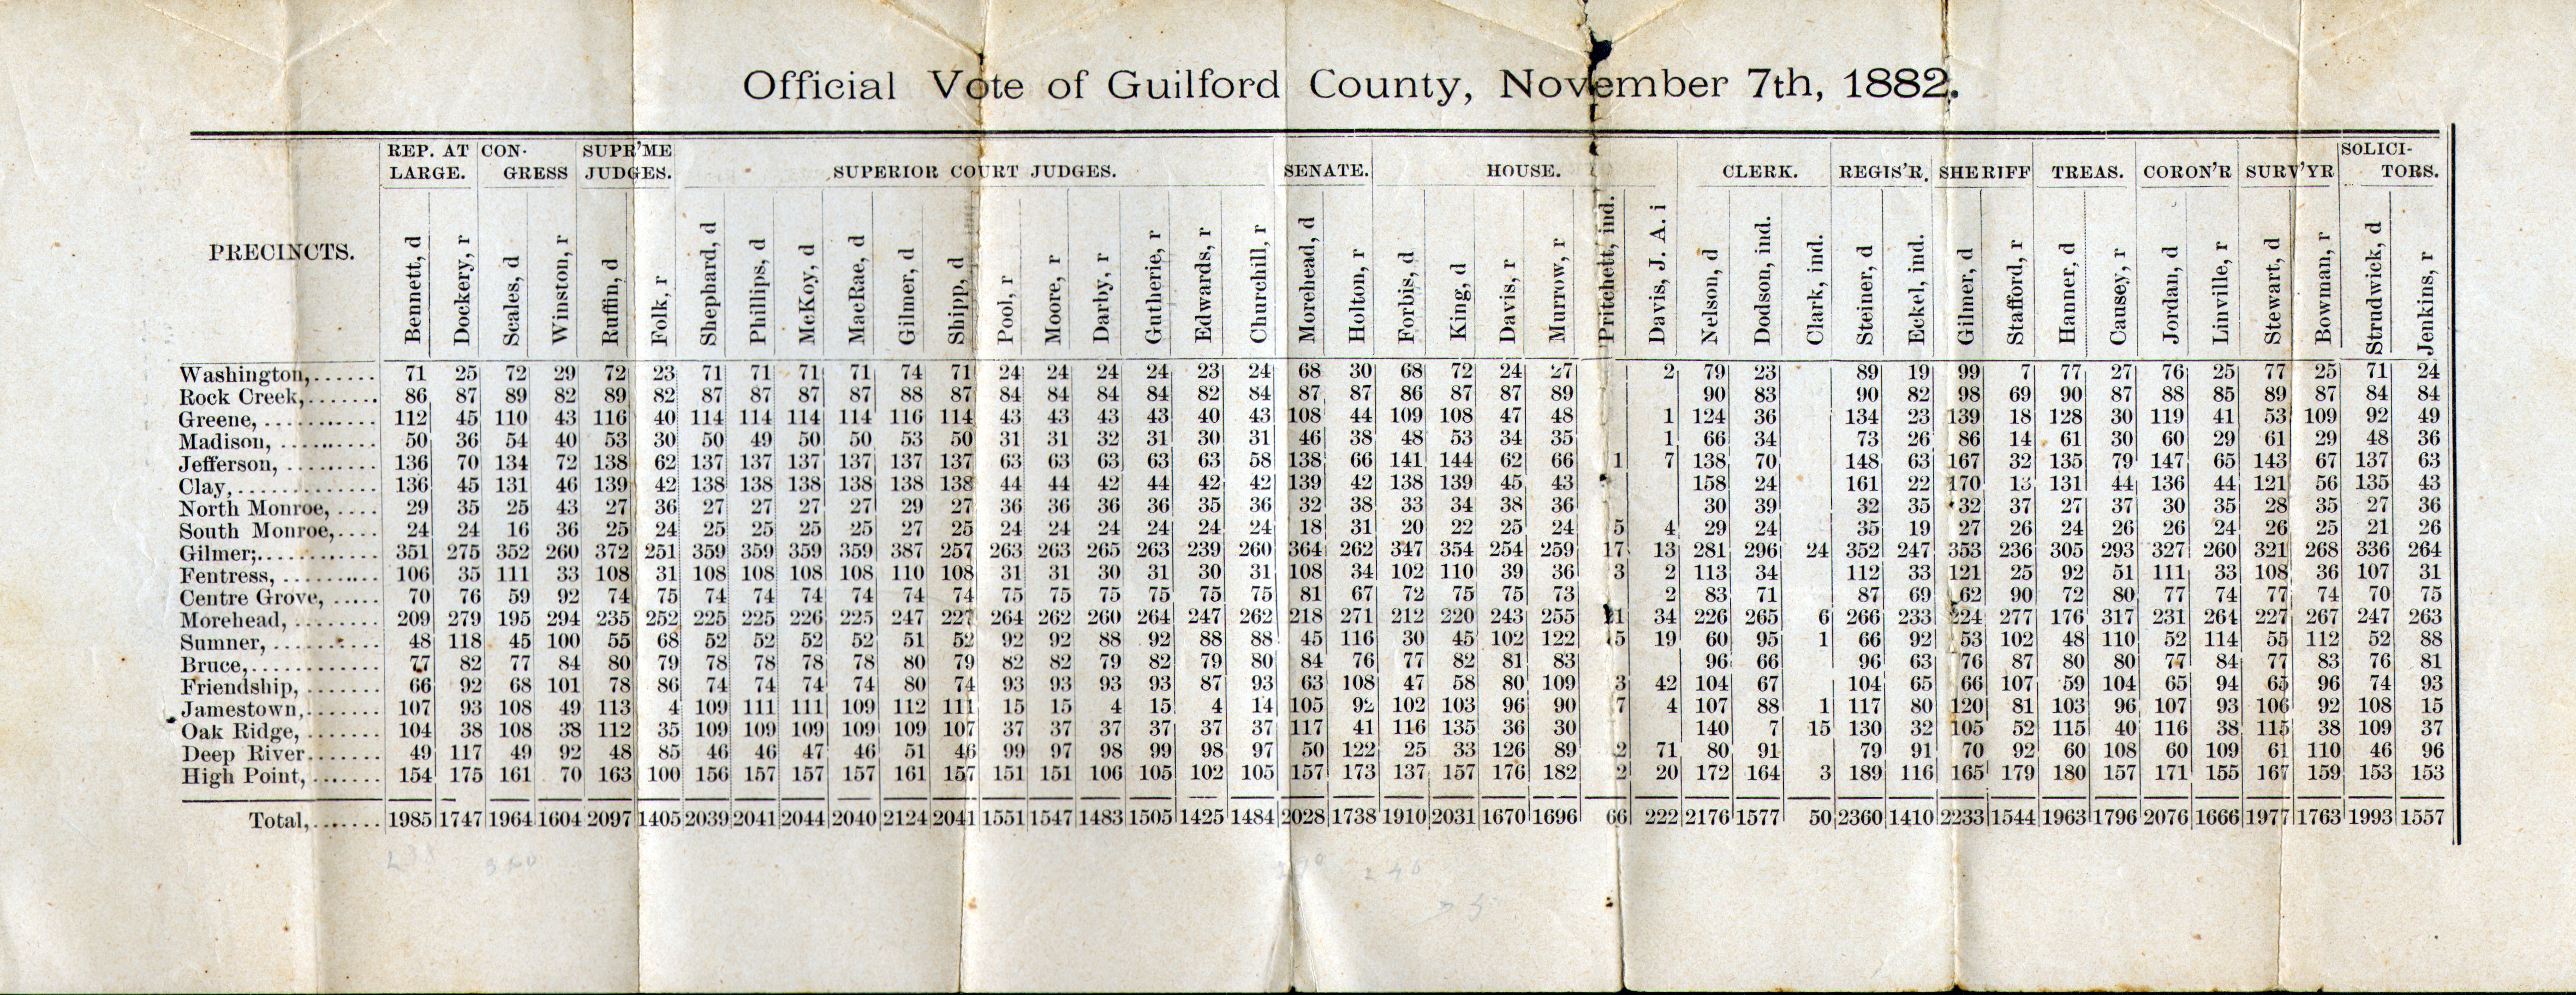 Official Vote of Guilford County, November 7th, 1882.
REP. AT LARGE. CON- GRESS SUPR'ME JUDGES. SUPERIOR COURT JUDGES. SENATE. HOUSE. CLERK. REGIS'R. SHERIFF TREAS. CORON'R SURV'YR SOLICI- TORS.
PRECINCTS. Bennett, d Dockery, r Scales, d Winston, r Ruffin, d Folk, r Shephard, d Phillips, d McKoy, d MacRae, d Gilmer, d Shipp, d Pool, r Moore, r Darby, r Gutherie, r Edwards, r Churchill, r Morehead, d Holton, r Forbis, d King, d Davis, r Murrow, r Pritchett, ind. Davis, J. A. i Nelson, d Dodson, ind. Clark, ind. Steiner, d Eckel, ind. Gilmer, d Stafford, r Hanner, d Causey, r Jordan, d Linville, r Stewart, d Bowman, r Strudwick, d Jenkins, r
Washington,...... 71 25 72 29 72 23 71 71 71 71 74 71 24 24 24 24 23 24 68 30 68 72 24 27 2 79 23 89 19 99 7 77 27 76 25 77 25 71 24
Rock Creek,....... 86 87 89 82 89 82 87 87 87 87 88 87 84 84 84 84 82 84 87 87 86 87 87 89 90 83 90 82 98 69 90 87 88 85 89 87 84 84
Greene, ........... 112 45 110 43 116 40 114 114 114 114 116 114 43 43 43 43 40 43 108 44 109 108 47 48 1 124 36 134 23 139 18 128 30 119 41 53 109 92 49
Madison, .......... 50 36 54 40 53 30 50 49 50 50 53 50 31 31 32 31 30 31 46 38 48 53 34 35 1 66 34 73 26 86 14 61 30 60 29 61 29 48 36
Jefferson, ......... 136 70 134 72 138 62 137 137 137 137 137 137 63 63 63 63 63 58 138 66 141 144 62 66 1 7 138 70 148 63 167 32 135 79 147 65 143 67 137 63
Clay,.............. 136 45 131 46 139 42 138 138 138 138 138 138 44 44 42 44 42 42 139 42 138 139 45 43 158 24 161 22 170 13 131 44 136 44 121 56 135 43
North Monroe, .... 29 35 25 43 27 36 27 27 27 27 29 27 36 36 36 36 35 36 32 38 33 34 38 36 30 39 32 35 32 37 27 37 30 35 28 35 27 36
South Monroe,.... 24 24 16 36 25 24 25 25 25 25 27 25 24 24 24 24 24 24 18 31 20 22 25 24 5 4 29 24 35 19 27 26 24 26 26 24 26 25 21 26
Gilmer;............ 351 275 352 260 372 251 359 359 359 359 387 257 263 263 265 263 239 260 364 262 347 354 254 259 17 13 281 296 24 352 247 353 236 305 293 327 260 321 268 336 264
Fentress, .......... 106 35 111 33 108 31 108 108 108 108 110 108 31 31 30 31 30 31 108 34 102 110 39 36 3 2 113 34 112 33 121 25 92 51 111 33 108 36 107 31
Centre Grove, ..... 70 76 59 92 74 75 74 74 74 74 74 74 75 75 75 75 75 75 81 67 72 75 75 73 2 83 71 87 69 62 90 72 80 77 74 77 74 70 75
Morehead, ........ 209 279 195 294 235 252 225 225 226 225 247 227 264 262 260 264 247 262 218 271 212 220 243 255 21 34 226 265 6 266 233 224 277 176 317 231 264 227 267 247 263
Sumner, .......... 48 118 45 100 55 68 52 52 52 52 51 52 92 92 88 92 88 88 45 116 30 45 102 122 5 19 60 95 1 66 92 53 102 48 110 52 114 55 112 52 88
Bruce,............ 77 82 77 84 80 79 78 78 78 78 80 79 82 82 79 82 79 80 84 76 77 82 81 83 96 66 96 63 76 87 80 80 77 84 77 83 76 81
Friendship, ....... 66 92 68 101 78 86 74 74 74 74 80 74 93 93 93 93 87 93 63 108 47 58 80 109 3 42 104 67 104 65 66 107 59 104 65 94 65 96 74 93
Jamestown,....... 107 93 108 49 113 4 109 111 111 109 112 111 15 15 4 15 4 14 105 92 102 103 96 90 7 4 107 88 1 117 80 120 81 103 96 107 93 106 92 108 15
Oak Ridge, ....... 104 38 108 38 112 35 109 109 109 109 109 107 37 37 37 37 37 37 117 41 116 135 36 30 140 7 15 130 32 105 52 115 40 116 38 115 38 109 37
Deep River....... 49 117 49 92 48 85 46 46 47 46 51 46 99 97 98 99 98 97 50 122 25 33 126 89 2 71 80 91 79 91 70 92 60 108 60 109 61 110 46 96
High Point, ....... 154 175 161 70 163 100 156 157 157 157 161 157 151 151 106 105 102 105 157 173 137 157 176 182 2 20 172 164 3 189 116 165 179 180 157 171 155 167 159 153 153
Total,....... 1985 1747 1964 1604 2097 1405 2039 2041 2044 2040 2124 2041 1551 1547 1483 1505 1425 1484 2028 1738 1910 2031 1670 1696 66 222 2176 1577 50 2360 1410 2233 1544 1963 1796 2076 1666 1977 1763 1993 1557